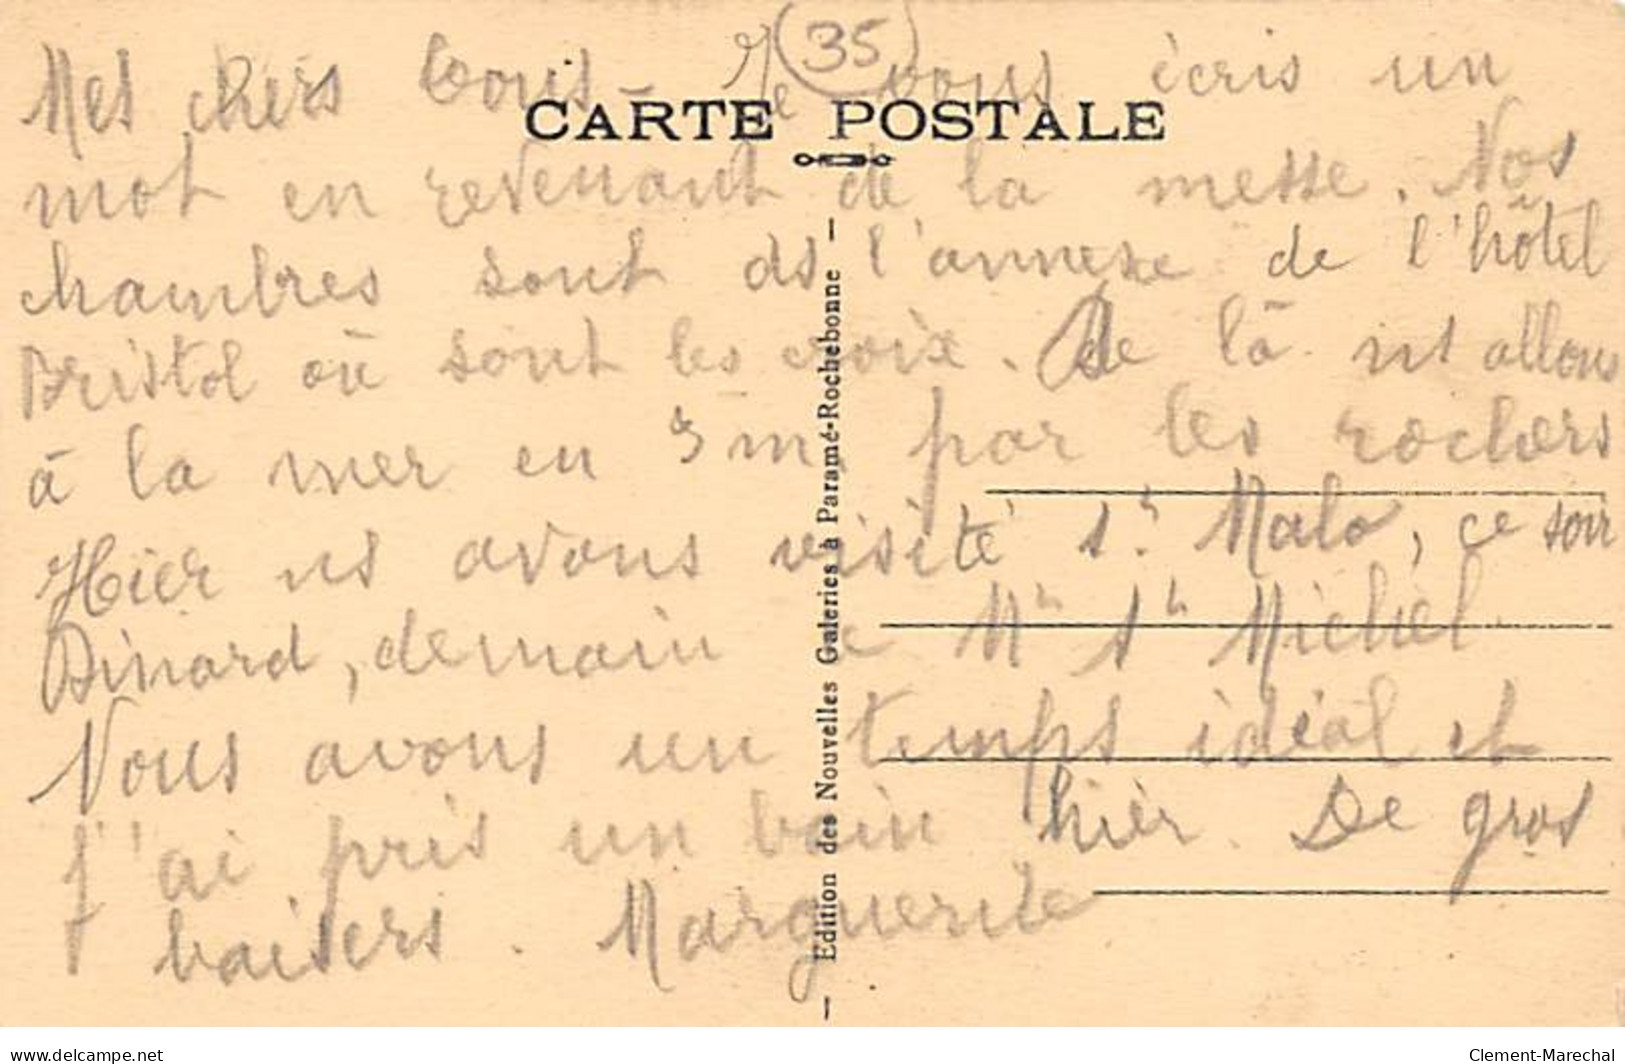 35
Mes chers tous - Je vous écris un
CARTE POSTALE
mot en revenant de la messe. Nos
chambres sont ds l'annexe de l'hôtel
Bristol où sont les croix. De là ns allons
à la mer en 5 m par les rochers
Hier ns avons visité St Malo, ce soir
Dinard, demain le Mt St Michel
Nous avons un temps idéal et
j'ai pris un bain hier. De gros
baisers. Marguerite
— Edition des Nouvelles Galeries à Paramé-Rochebonne —
www.delcampe.net
Clement-Marechal